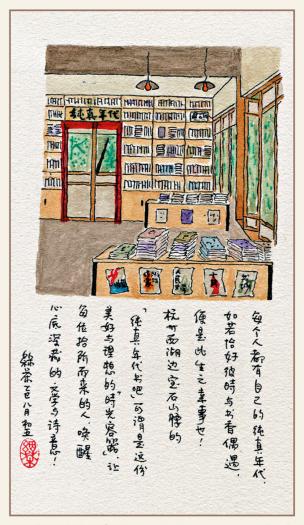 纯真年代
每个人都有自己的纯真年代,
如若恰好彼时与书香偶遇,
便是此生之幸事也!
杭州西湖边宝石山脚的
“纯真年代书吧”可谓是这份
美好与理想的“时光容器”,让
每位拾阶而来的人,唤醒
心底深藏的文学与诗意!
绿茶乙巳八月初五